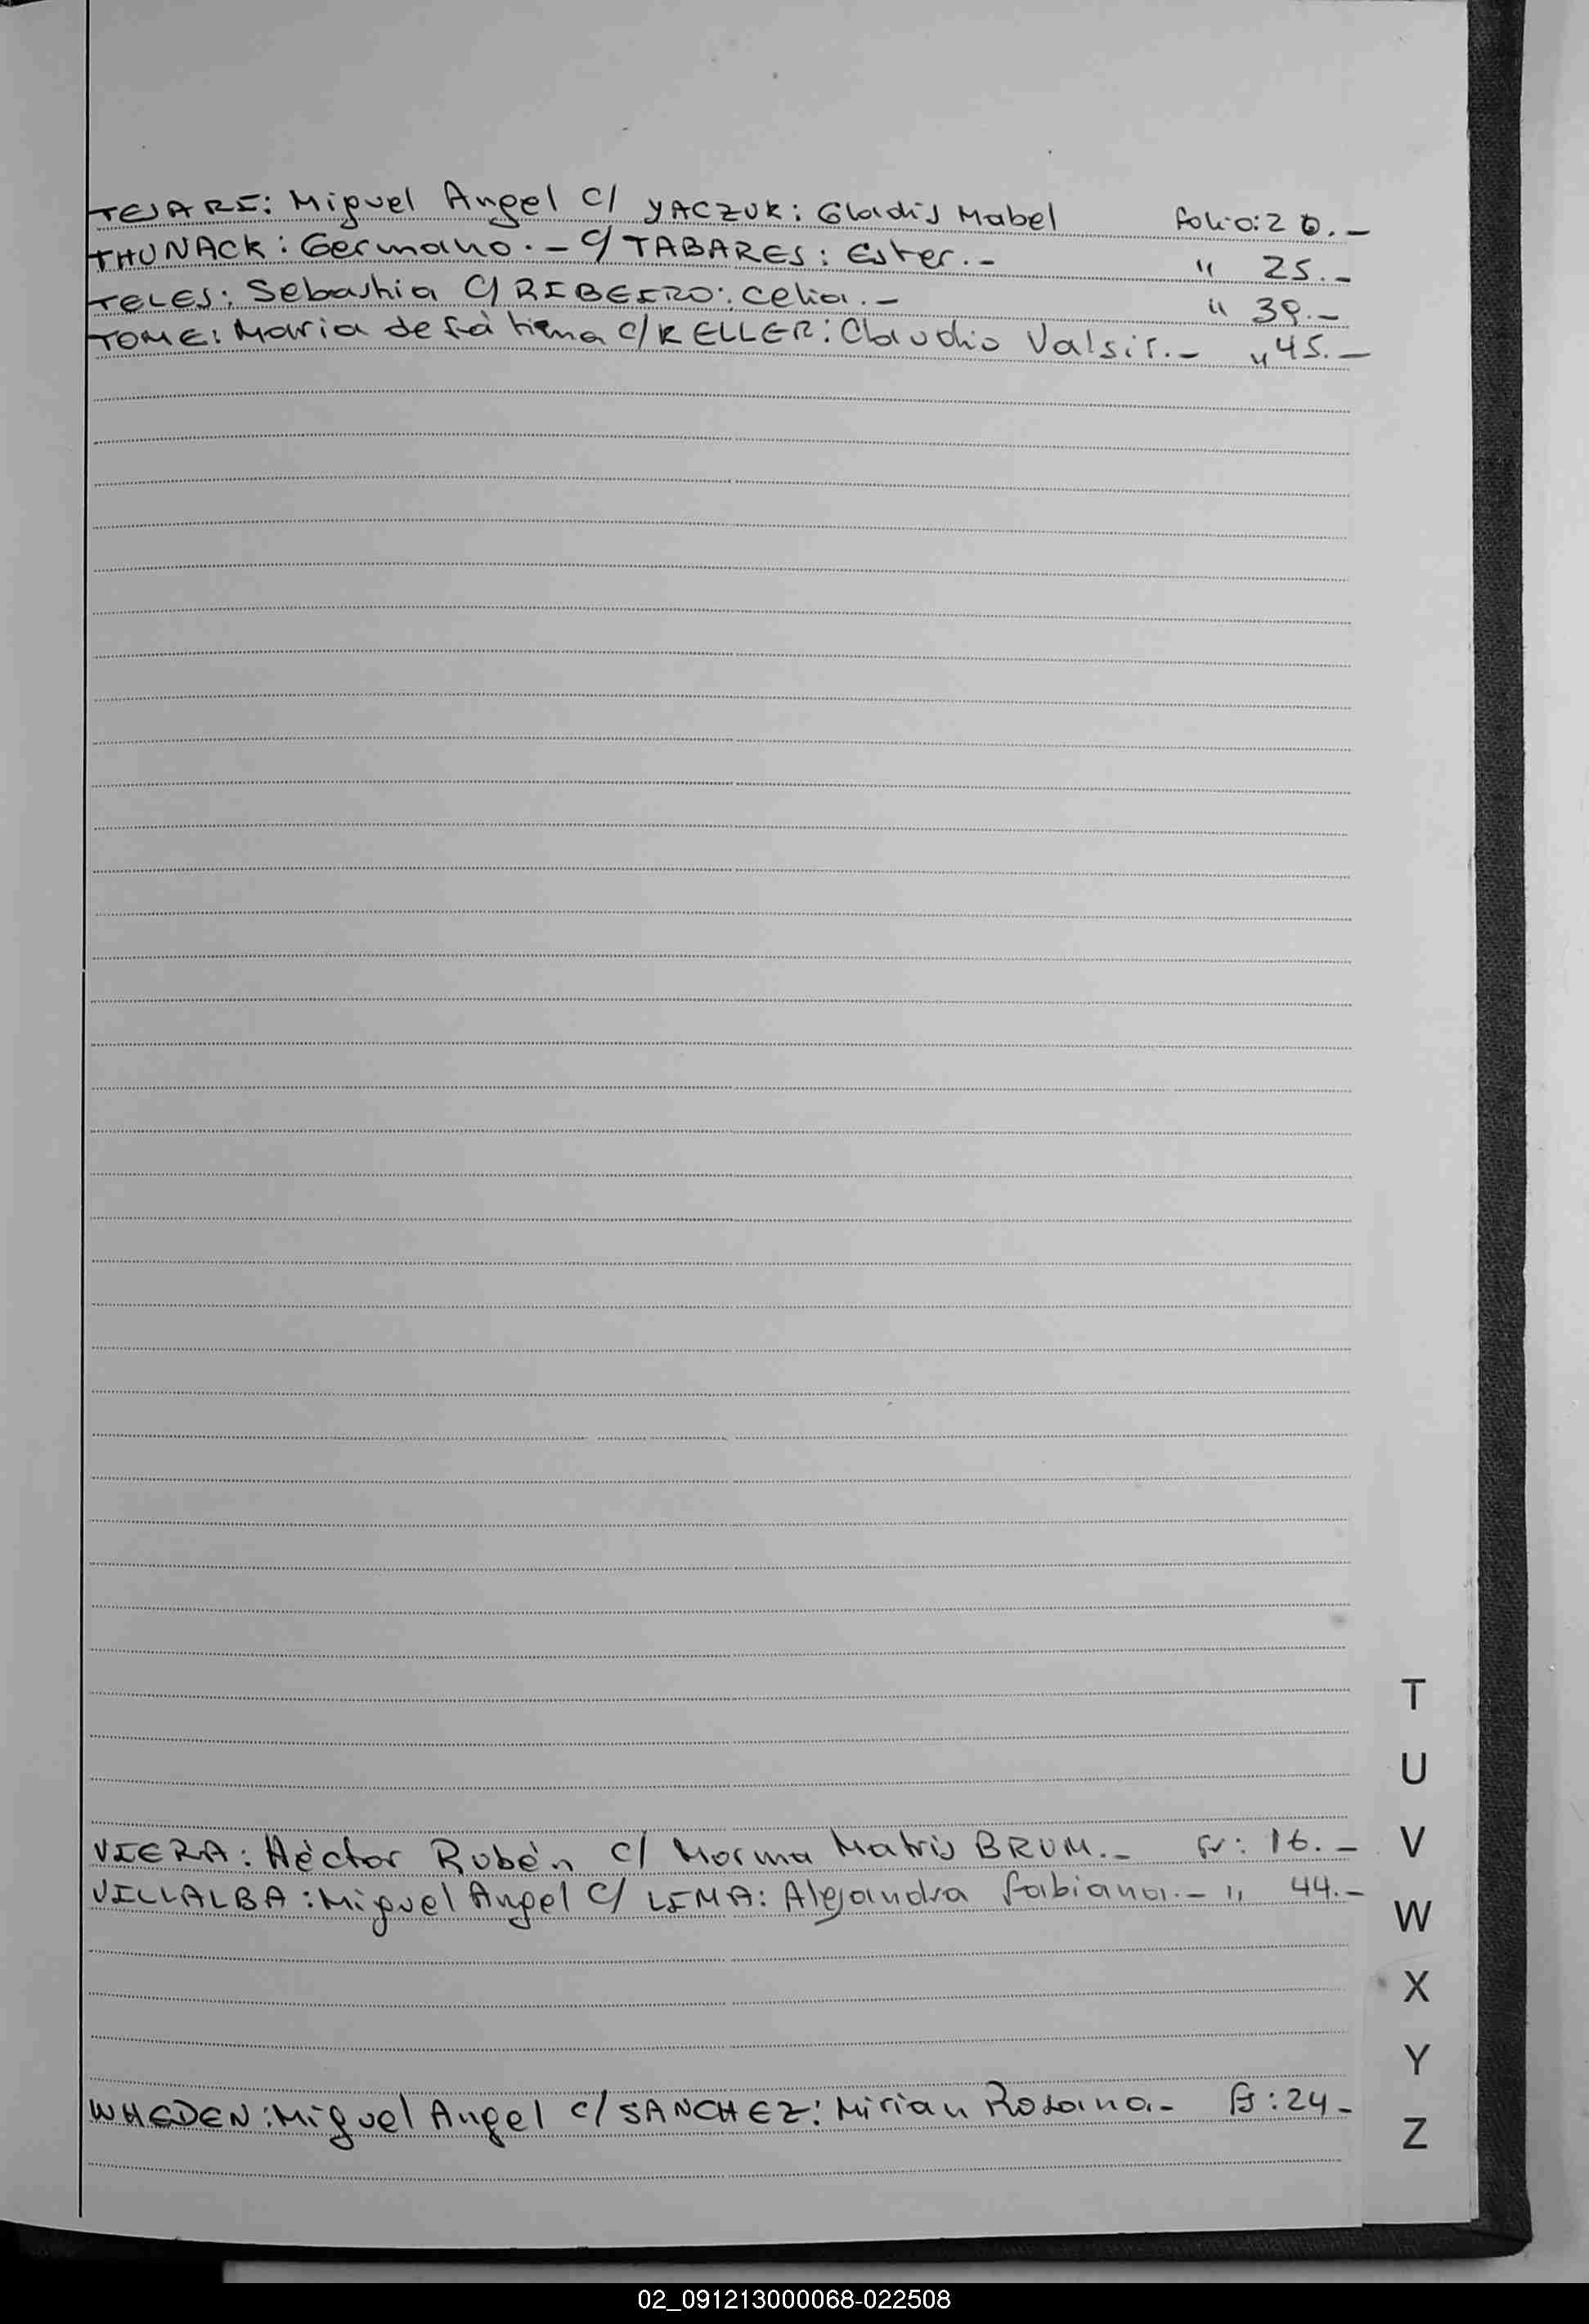 TEJARI: Miguel Angel c/ YACZUK: Gladis Mabel folio: 20.-
THUNACK: Germano.- c/ TABARES: Ester.- " 25.-
TELES: Sebasthia c/ RIBEIRO: Celia.- " 39.-
TOME: Maria de fátima c/ KELLER: Claudio Valsir.- " 45.-
T
U
VIERA: Héctor Rubén c/ Norma Matris BRUM.- fº: 16.-
V
VILLALBA: Miguel Angel c/ LIMA: Alejandra fabiana.- " 44.-
W
X
Y
WHEDEN: Miguel Angel c/ SANCHEZ: Mirian Rosana- :24-
Z
02_091213000068-022508